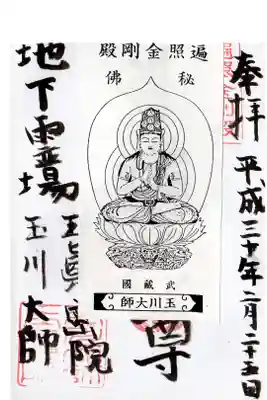 奉拝
平成三十年二月二十五日
遍照金剛殿
秘佛
武蔵國
玉川大師
尊
玉眞院
地下霊場
玉川大師